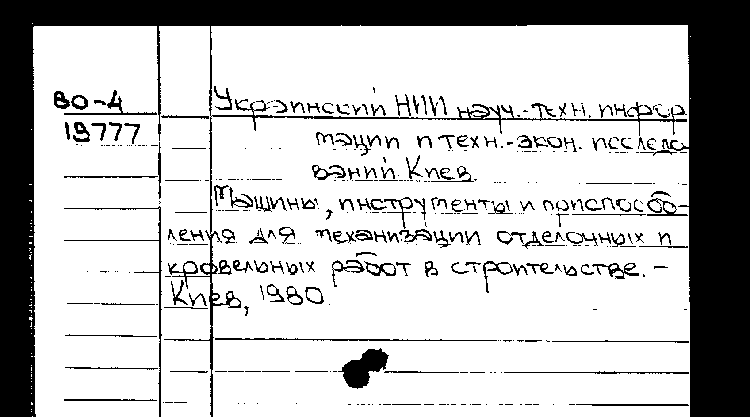 80-4
19777
Украинский НИИ науч.-техн. инфор
мации и техн.-экон. исследо
ваний Киев
Машины, инструменты и приспособ-
ления для механизации отделочных и
кровельных работ в строительстве. -
Киев, 1980